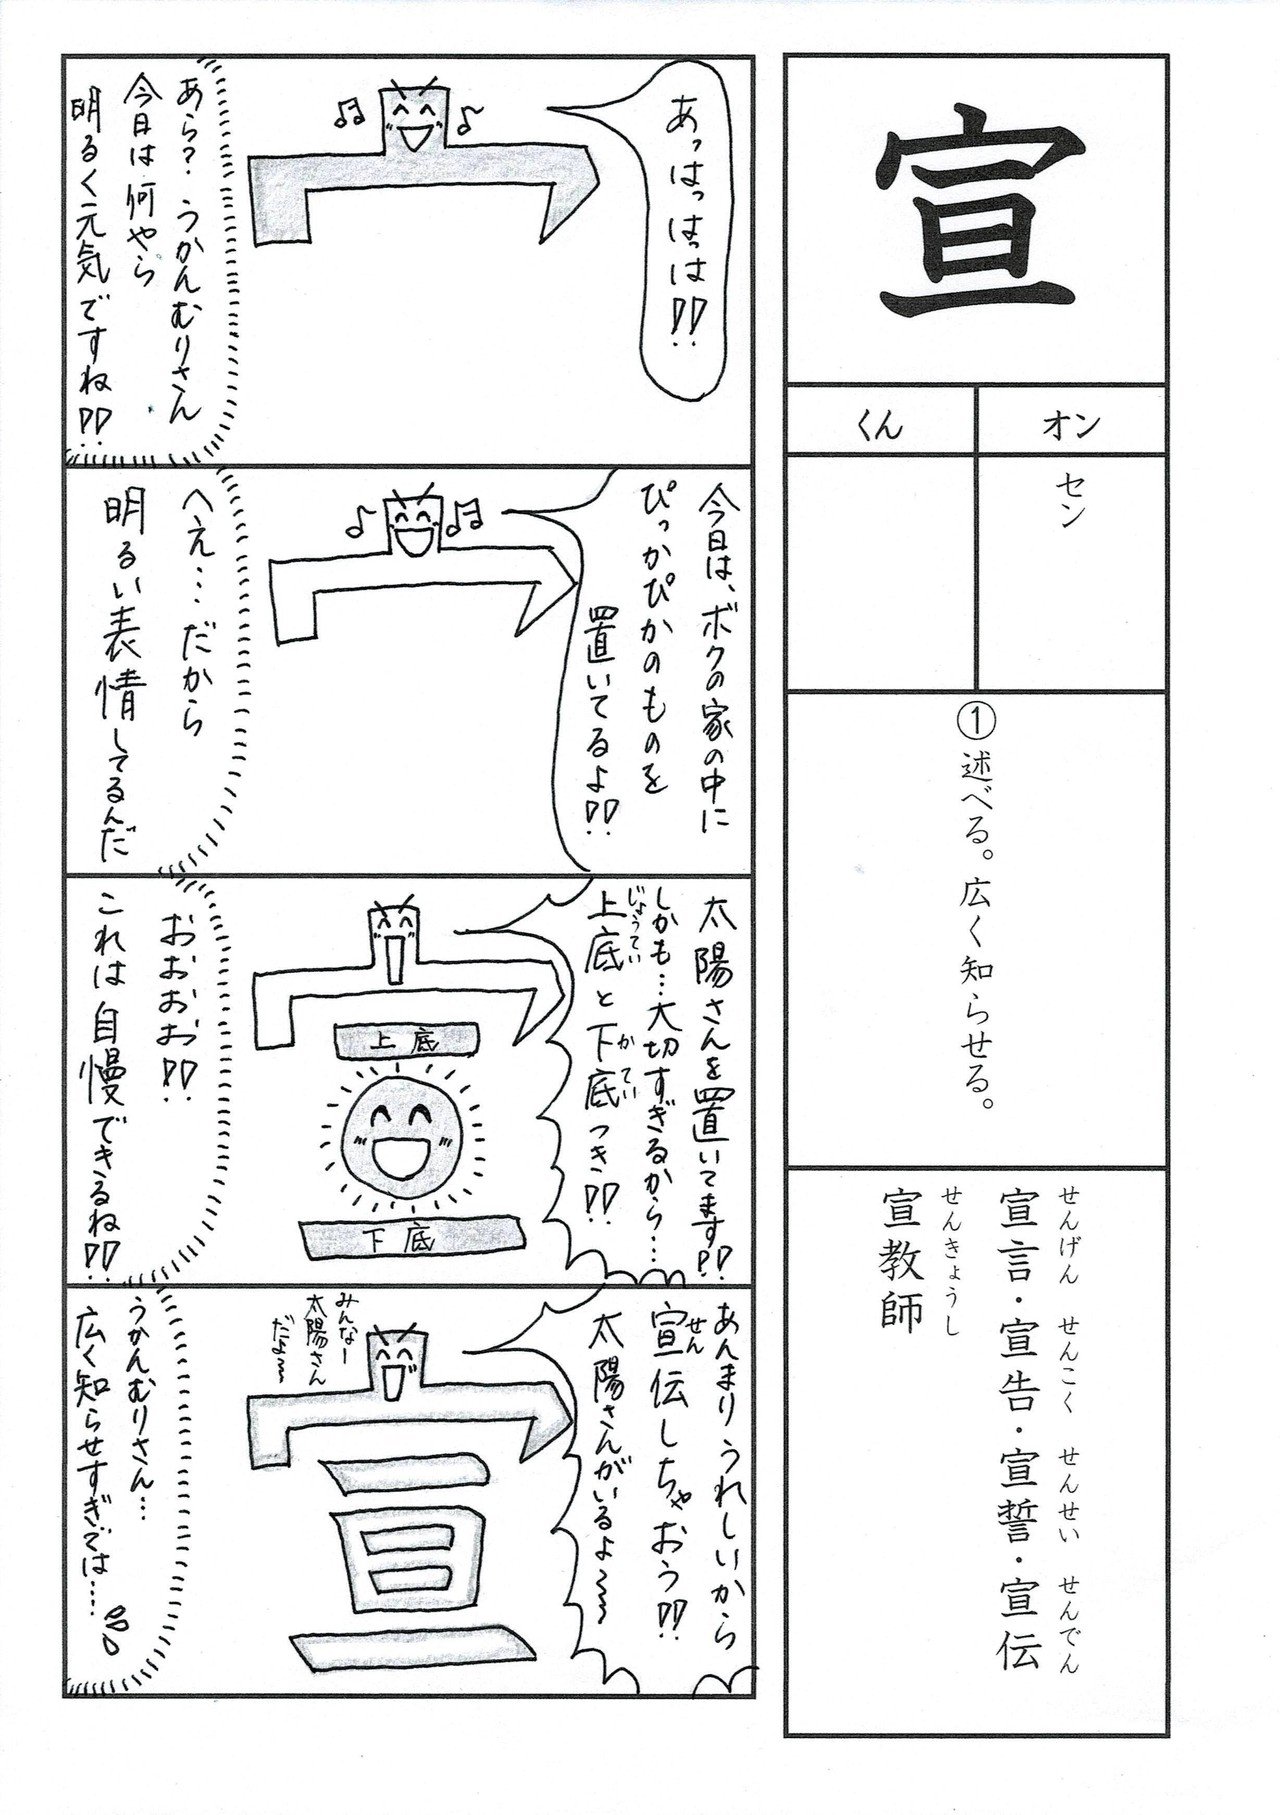 宣
オン
くん
セン
①述べる。広く知らせる。
せんげん せんこく せんせい せんでん
宣言・宣告・宣誓・宣伝
せんきょうし
宣教師
あっはっはっは!!
あら?うかんむりさん
今日は何やら
明るく元気ですね!!
今日は、ボクの家の中に
ぴっかぴかのものを
置いてるよ!!
へえ…だから
明るい表情してるんだ
太陽さんを置いてます!!
しかも…大切すぎるから…
じょうてい かてい
上底と下底つき!!
上底
下底
おおおお!!
これは自慢できるね!!
あんまりうれしいから
せん
宣伝しちゃおう!!
太陽さんがいるよ〜〜
みんなー
太陽さん
だよ〜〜
宣
うかんむりさん…
広く知らせすぎでは……